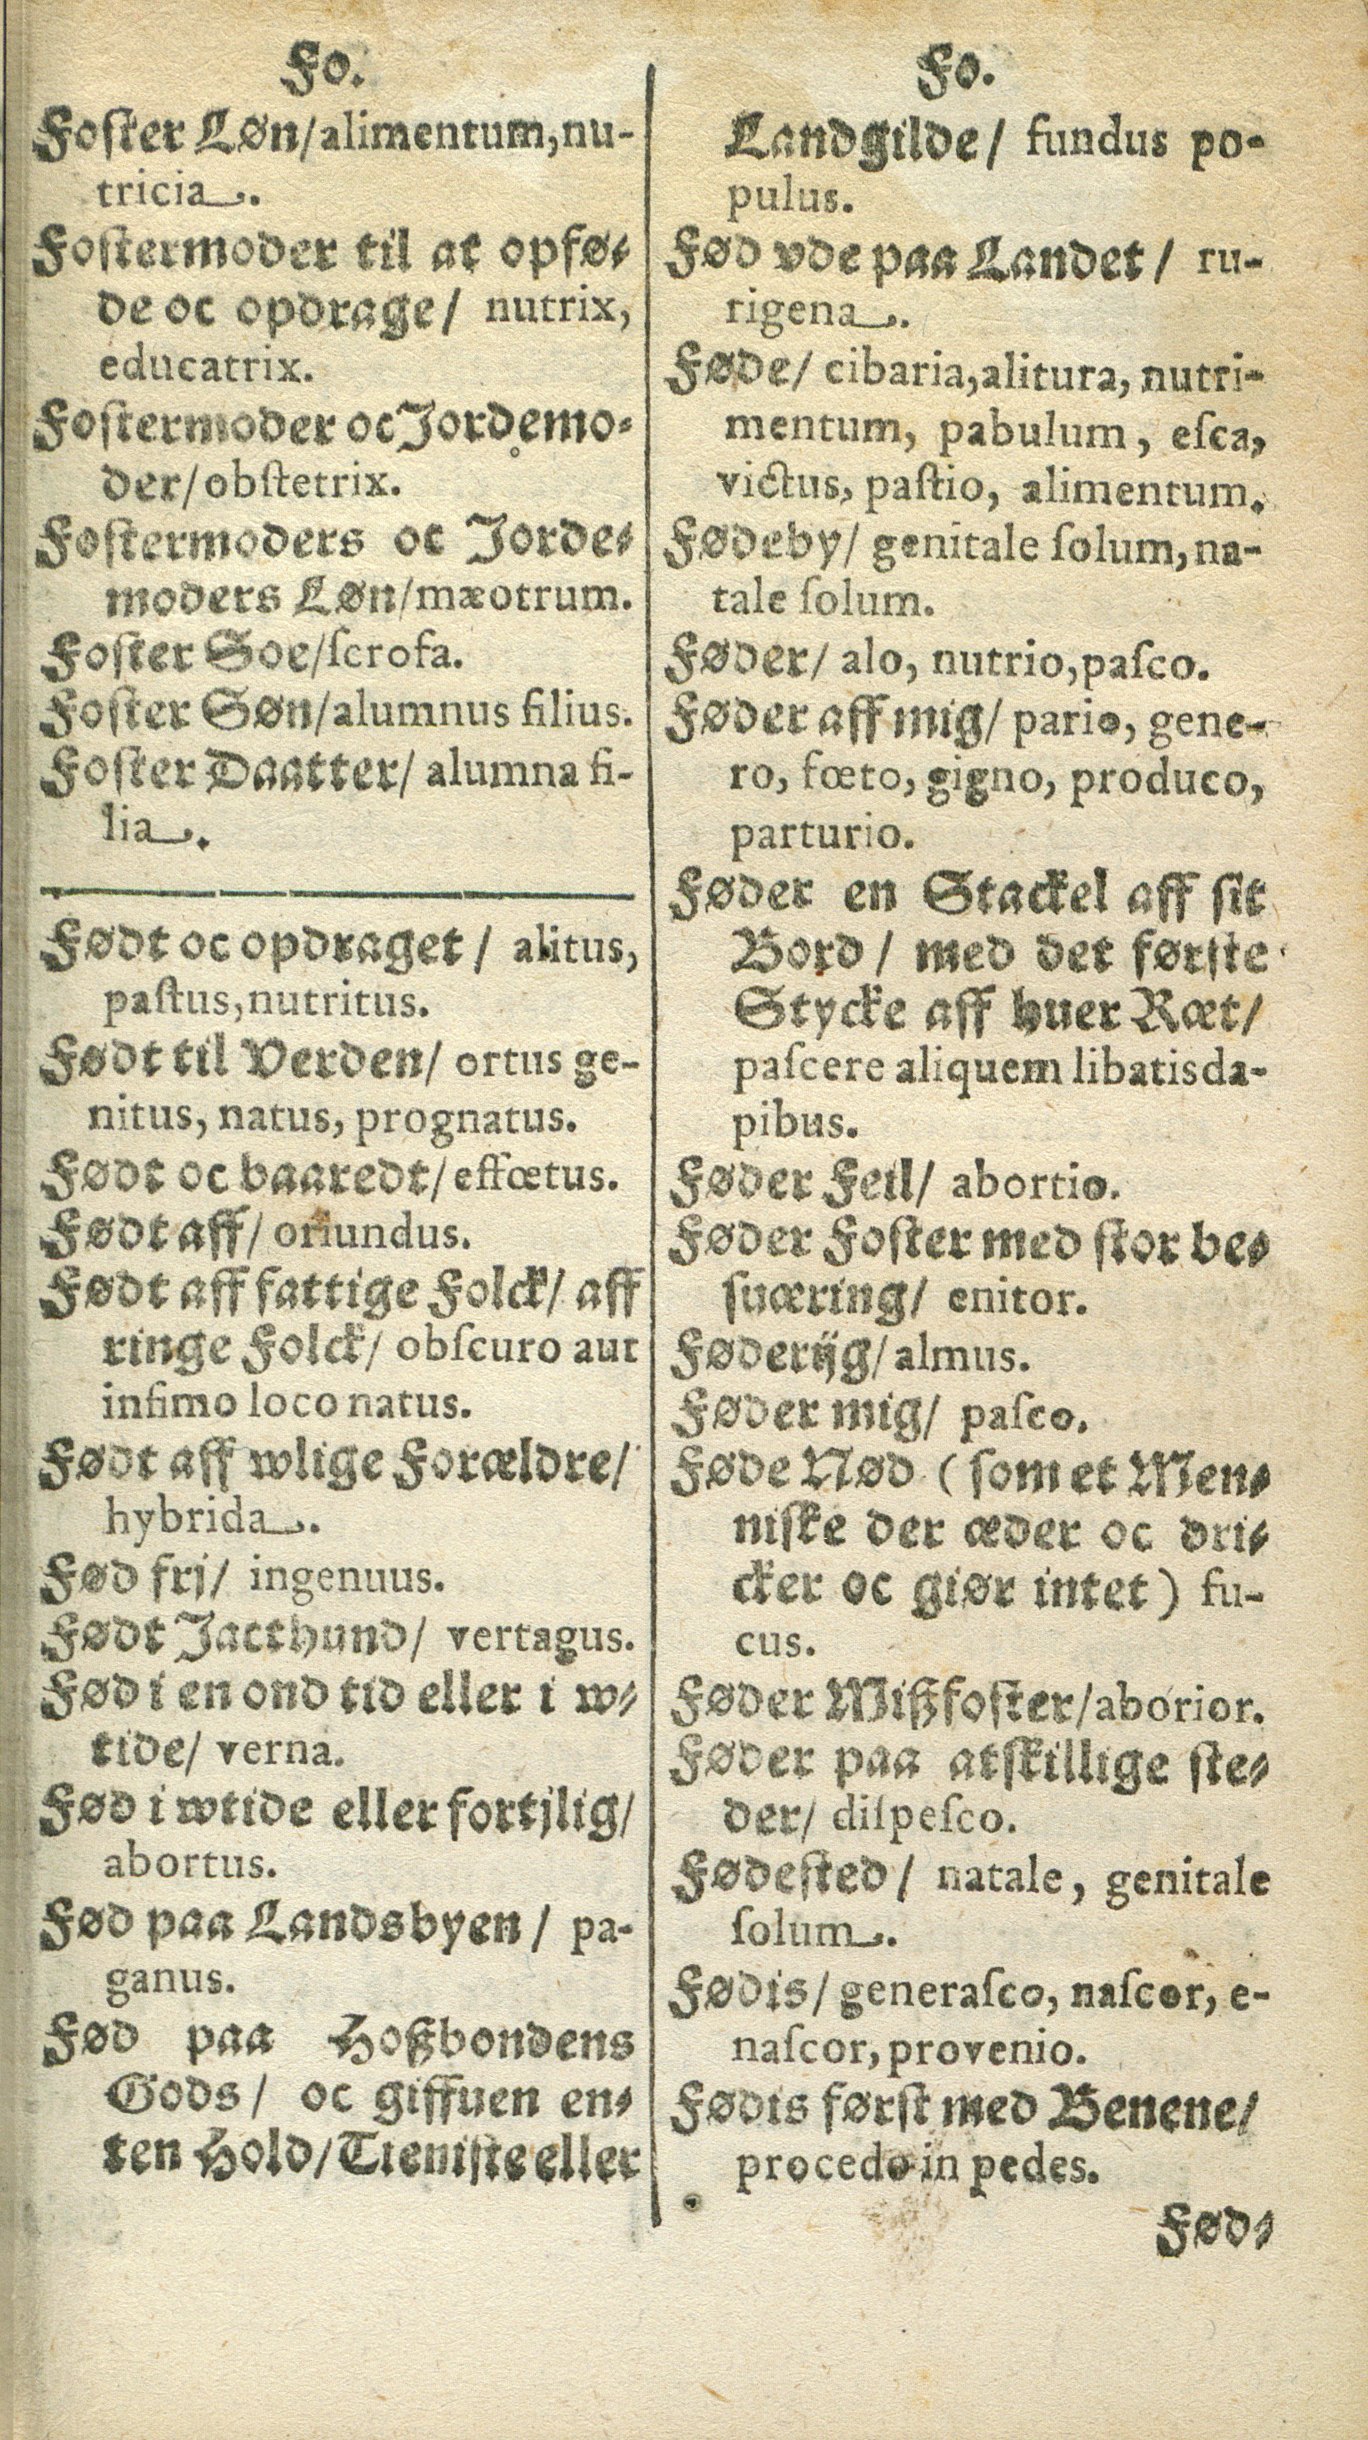 Fo.
Foſter Løn/alimentum,nu-
tricia.
Foſtermoder til at opfø-
de oc opdrage/ nutrix,
educatrix.
Foſtermoder oc Jordemo-
der/obſtetrix.
Foſtermoders oc Jorde-
moders Løn/mæotrum.
Foſter Soe/ſcrofa.
Foſter Søn/alumnus filius.
Foſter Daatter/ alumna fi-
lia.
Født oc opdraget/ alitus,
paſtus,nutritus.
Født til Verden/ ortus ge-
nitus, natus, prognatus.
Født oc baaredt/effœtus.
Født aff/ oriundus.
Født aff fattige Folck/ aff
ringe Folck/ obſcuro aut
infimo loco natus.
Født aff wlige Forældre/
hybrida.
Fød frj/ ingenuus.
Født Jacthund/ vertagus.
Fød i en ond tid eller i w-
tide/ verna.
Fød i wtide eller fortjlig/
abortus.
Fød paa Landsbyen/ pa-
ganus.
Fød paa Hoßbondens
Gods/ oc giffuen en-
ten Hold/Tieniſte eller
Fo.
Landgilde/ fundus po-
pulus.
Fød vde paa Landet/ ru-
rigena.
Føde/ cibaria,alitura, nutri-
mentum, pabulum, eſca,
victus, paſtio, alimentum.
Fødeby/ genitale ſolum,na-
tale ſolum.
Føder/ alo, nutrio,paſco.
Føder aff mig/ pario, gene-
ro, fœto, gigno, produco,
parturio.
Føder en Stackel aff ſit
Bord/ med det førſte
Stycke aff huer Ræt/
paſcere aliquem libatisda-
pibus.
Føder Feil/ abortio.
Føder Foſter med ſtor be-
ſuæring/ enitor.
Føderijg/almus.
Føder mig/ paſco.
Føde Nød (ſom et Men-
niſke der æder oc dri-
cker oc giør intet) fu-
cus.
Føder Mißfoſter/aborior.
Føder paa atſkillige ſte-
der/ diſpeſco.
Fødeſted/ natale, genitale
ſolum.
Fødis/ generaſco, naſcor, e-
naſcor, provenio.
Fødis førſt med Benene/
procedo in pedes.
Fød-